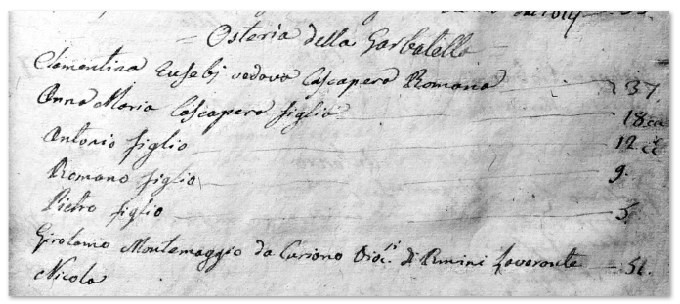 Osteria della Garbatella
Clementina Eusebj vedova Cascapera Romana 37
Anna Maria Cascapera figlia 18 ca
Antonio figlio 12 cr
Romano figlio 9.
Pietro figlio 5.
Girolamo Montemaggio da Curiano Dioc.si di Rimini Lavorante 51.
Nicola